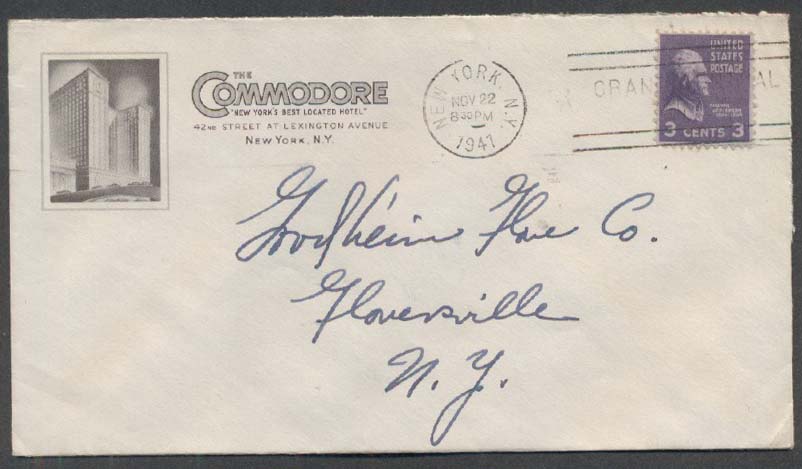 THE
COMMODORE
"NEW YORK'S BEST LOCATED HOTEL"
42ND STREET AT LEXINGTON AVENUE
NEW YORK, N.Y.
NEW YORK, N.Y.
NOV 22
8 30 PM
1941
GRAN AL
UNITED
STATES
POSTAGE
3 CENTS 3
Goodheim Glove Co.
Gloversville
N. Y.